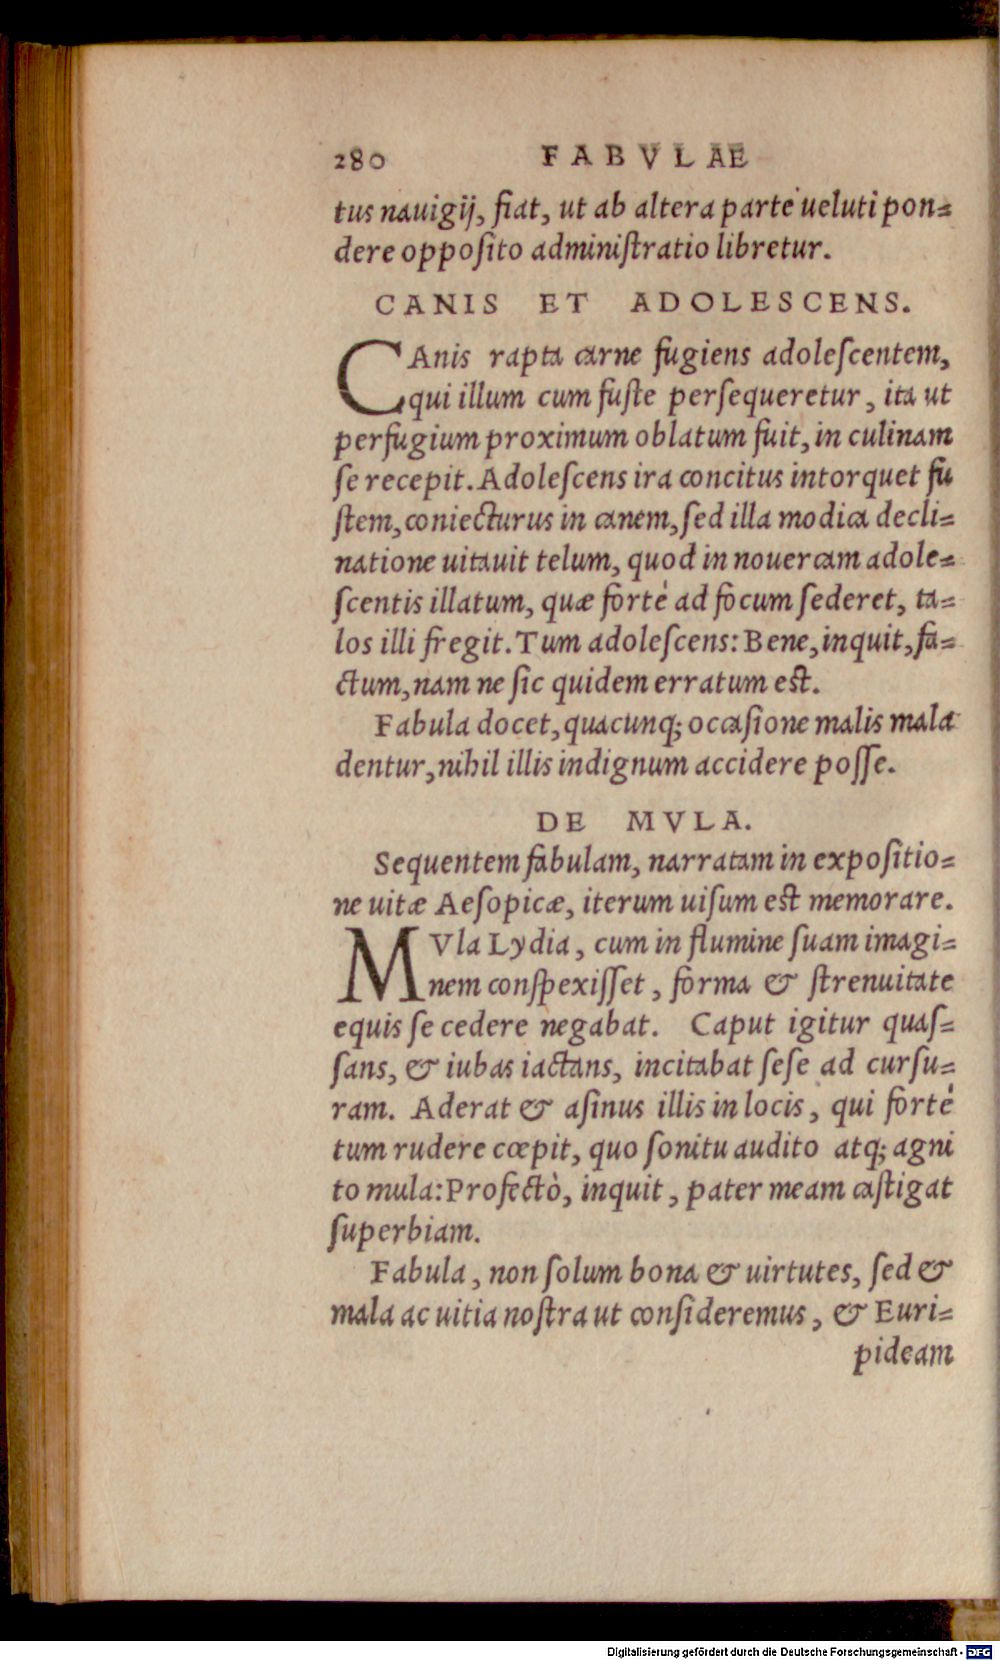 280 FABVLAE
tus nauigij, fiat, ut ab altera parte ueluti pon=
dere opposito administratio libretur.
CANIS ET ADOLESCENS.
CAnis rapta carne fugiens adolescentem,
qui illum cum fuste persequeretur, ita ut
perfugium proximum oblatum fuit, in culinam
se recepit. Adolescens ira concitus intorquet fu
stem, coniecturus in canem, sed illa modica decli=
natione uitauit telum, quod in nouercam adole=
scentis illatum, quæ fortè ad focum sederet, ta=
los illi fregit. Tum adolescens: Bene, inquit, fa=
ctum, nam ne sic quidem erratum est.
Fabula docet, quacunq; occasione malis mala
dentur, nihil illis indignum accidere posse.
DE MVLA.
Sequentem fabulam, narratam in expositio=
ne uitæ Aesopicæ, iterum uisum est memorare.
MVla Lydia, cum in flumine suam imagi=
nem conspexisset, forma & strenuitate
equis se cedere negabat. Caput igitur quas=
sans, & iubas iactans, incitabat sese ad cursu=
ram. Aderat & asinus illis in locis, qui fortè
tum rudere cœpit, quo sonitu audito atq; agni
to mula: Profectò, inquit, pater meam castigat
superbiam.
Fabula, non solum bona & uirtutes, sed &
mala ac uitia nostra ut consideremus, & Euri=
pideam
Digitalisierung gefördert durch die Deutsche Forschungsgemeinschaft - DFG